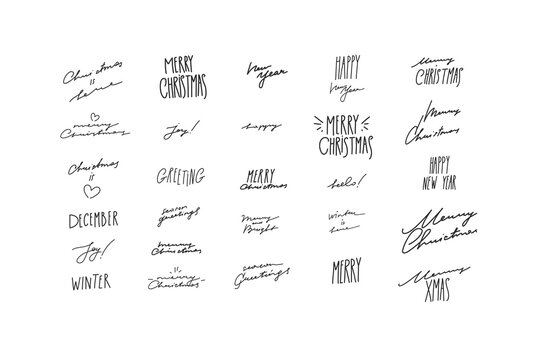 Christmas
is
here
MERRY
CHRISTMAS
New
Year
HAPPY
New Year
Merry
CHRISTMAS
merry
Christmas
Joy!
happy
MERRY
CHRISTMAS
Merry
Christmas
Christmas
is
GREETING
MERRY
Christmas
hello!
HAPPY
NEW YEAR
DECEMBER
season
greetings
Merry
and
Bright
winter
is
here
Merry
Christmas
Joy!
merry
Christmas
WINTER
merry
Christmas
season
Greetings
MERRY
Merry
XMAS